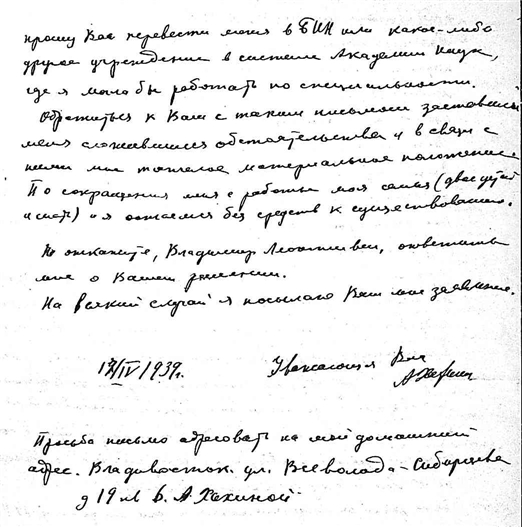 прошу Вас перевести меня в БИН или какое-либо
другое учреждение в системе Академии Наук,
где я могла бы работать по специальности.
Обратиться к Вам с таким письмом заставили
меня сложившиеся обстоятельства и в связи с
ними мое тяжелое материальное положение.
По сокращении меня с работы моя семья (двое детей
и мать) и я остаемся без средств к существованию.
Не откажите, Владимир Леонтьевич, ответить
мне о Вашем решении.
На всякий случай я посылаю Вам мое заявление.
IV 1939г. Уважающая Вас
Просьба письмо адресовать на мой домашний
адрес. Владивосток. ул. Всеволода-Сибирцева
д 19 кв 6. А. Хахиной